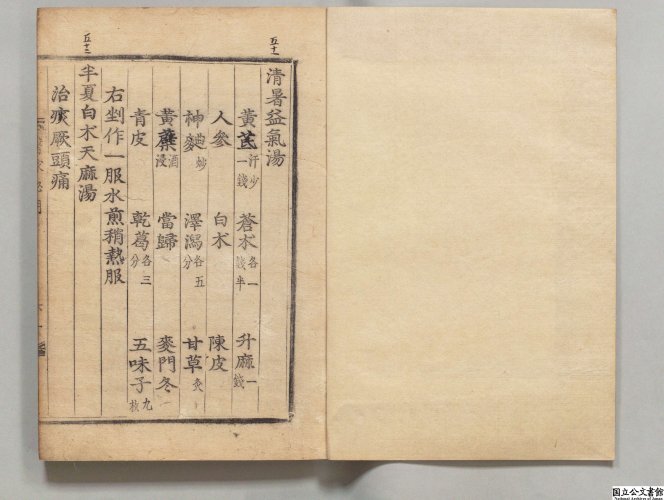 五十一
清暑益氣湯
黃芪 汗少一錢 蒼朮 各一錢半 升麻 一錢
人參 白朮 陳皮
神麴 炒 澤瀉 各五分 甘草 炙
黃蘗 酒浸 當歸 麥門冬
青皮 乾葛 各三分 五味子 九枚
右剉作一服水煎稍熱服
五十二
半夏白朮天麻湯
治痰厥頭痛
国立公文書館
National Archives of Japan